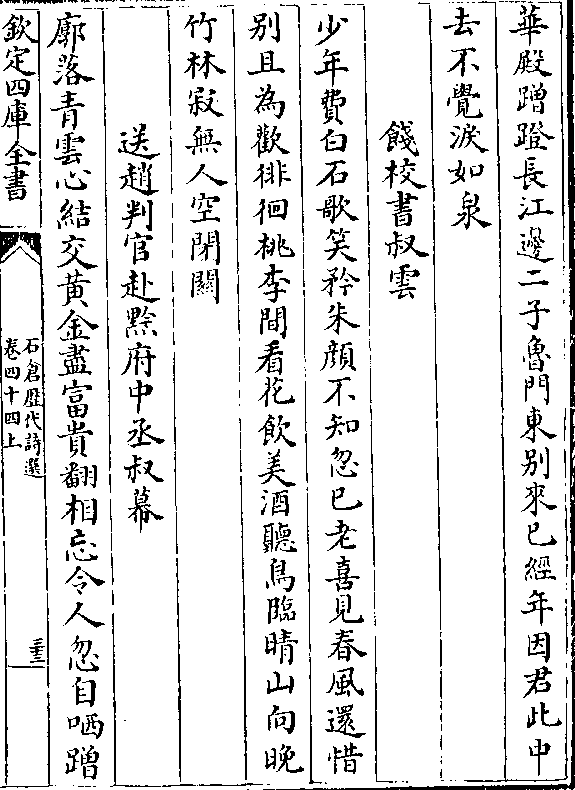 華殿蹭蹬長江邊二子魯門東别來已經年因君此中
去不覺淚如泉
餞校書叔雲
少年費白石歌笑矜朱顔不知忽已老喜見春風還惜
别且為歡徘徊桃李間看花飲美酒聽鳥臨晴山向晚
竹林寂無人空閉關
送趙判官赴黔府中丞叔幕
廓落青雲心結交黄金盡富貴翻相忘令人忽自哂蹭
欽定四庫全書
石倉歴代詩選
卷四十四上
三十三